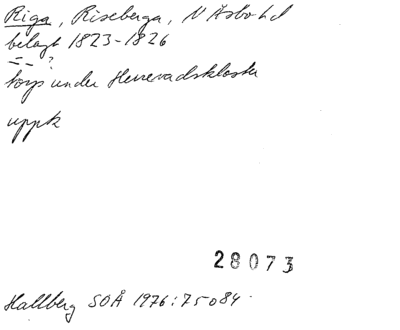 Riga, Riseberga, N Åsbo hd
belagt 1823-1826
= - ?
torp under Herrevadskloster
uppk
28073
Hallberg SOÅ 1976: 75 o 84